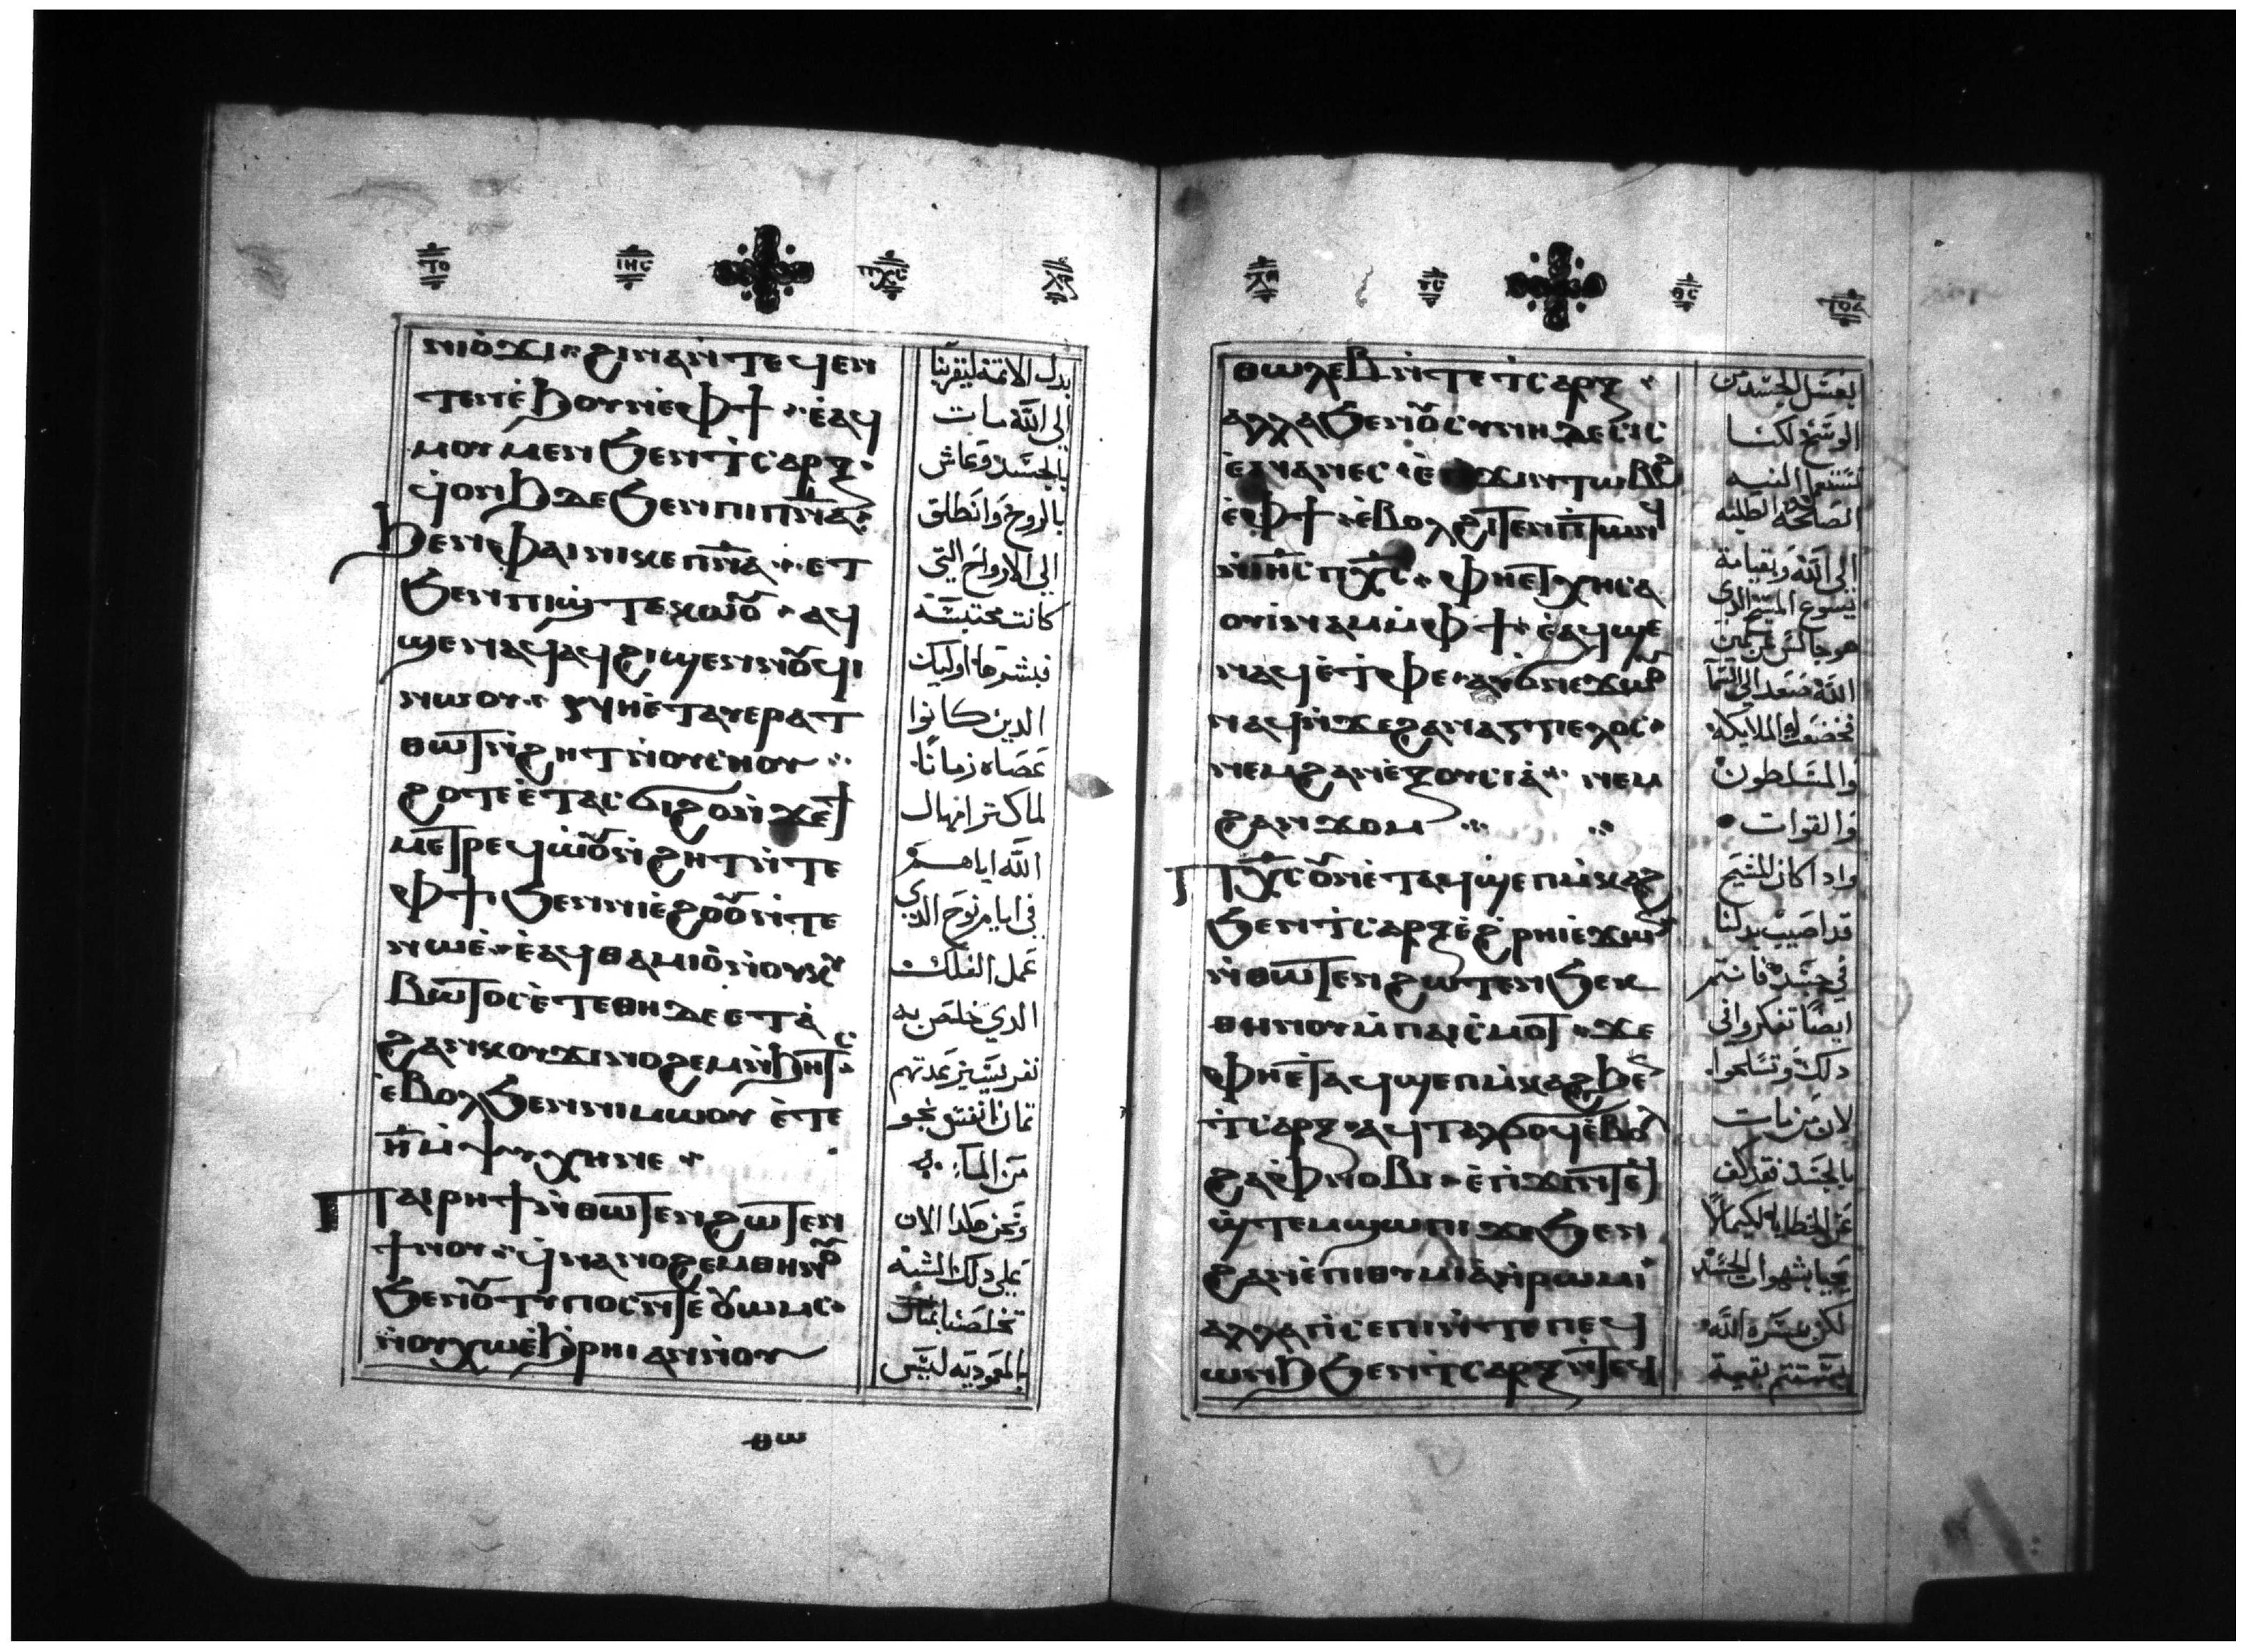 ⲓⲏⲥ ⲡⲭⲥ
ⲛⲓⲟ̀ϫⲓ ϩⲓⲛⲁ ⲛ̀ⲧⲉϥⲉⲛ
ⲧⲉⲛ ⲉ̀ϧⲟⲩⲛ ⲉⲫϯ ⲉ̀ⲁϥ
ⲙⲟⲩ ⲙⲉⲛ ϧⲉⲛ ⲧ̀ⲥⲁⲣⲝ
ϥⲟⲛϧ ⲇⲉ ϧⲉⲛ ⲡⲓⲡⲛ̅ⲁ̅
ϧⲉⲛ ⲫⲁⲓ ⲛⲓⲕⲉⲡⲛ̅ⲁ̅ ⲉⲧ
ϧⲉⲛ ⲡⲓϣ̀ⲧⲉⲕⲱⲟⲩ ⲁϥ
ϣⲉⲛⲁϥ ⲁϥϩⲓϣⲉⲛⲛⲟⲩϥⲓ
ⲛⲱⲟⲩ ⲛⲏ ⲉ̀ⲧⲁⲩⲉⲣⲁⲧ
ⲑⲱⲧ ⲛ̀ϩⲏⲧ ⲛ̀ⲟⲩⲥⲏⲟⲩ
ϩⲟⲧⲉ ⲉ̀ⲧⲁⲥϭⲓϩⲟ ⲛ̀ϫⲉϯ
ⲙⲉⲧⲣⲉϥⲱⲟⲩⲛ̀ϩⲏⲧ ⲛ̀ⲧⲉ
ⲫϯ ϧⲉⲛ ⲛⲓⲉ̀ϩⲟⲟⲩ ⲛ̀ⲧⲉ
ⲛⲱⲉ̀ ⲉ̀ⲁϥⲑⲁⲙⲓⲟ̀ ⲛ̀ⲟⲩⲕⲩ
ⲃⲱⲧⲟⲥ ⲉ̀ⲧⲉ ⲑⲏ ⲇⲉ ⲉⲧⲁ̀
ϩⲁⲛⲕⲟⲩϫⲓ ⲛⲟϩⲉⲙ ⲛ̀ϧⲏⲧⲥ
ⲉ̀ⲃⲟⲗ ϧⲉⲛ ⲛⲓⲙⲱⲟⲩ ⲉ̀ⲧⲉ
ⲏ̅ ⲙ̀ⲯⲩⲭⲏ ⲛⲉ
ⲡⲁⲓⲣⲏϯ ⲛ̀ⲑⲱⲧⲉⲛ ϩⲱⲧⲉⲛ
ϯⲛⲟⲩ ϥ̀ⲛⲁⲛⲟϩⲉⲙ ⲑⲏⲛⲟⲩ
ϧⲉⲛ ⲟⲩⲧⲩⲡⲟⲥ ⲛ̀ⲧⲉ ⲟⲩⲱⲙⲥ
ⲛ̀ⲟⲩⲭⲱ ⲉ̀ϧⲣⲏⲓ ⲁⲛ ⲛ̀ⲟⲩ
بدل الاثمة ليقربنا
الى الله مات
بالجسد وعاش
بالروح وانطلق
الى الارواح التي
كانت محتبسه
فبشرها اوليك
الدين كانوا
عصاه زمانا
لما كتر امهال
الله اياهم
في ايام نوح الدي
عمل الفلك
الدي خلص به
نفر يسير عدتهم
تمان انفس نجو
من الما
ونحن هكدا الان
على دلك الشبه
تخلصنا بمثال
بالمعوديه ليس
ⲑⲱ
ⲩⲥ ⲑⲥ ⲧⲟⲁ
ⲑⲱⲗⲉⲃ ⲛ̀ⲧⲉ ⲧ̀ⲥⲁⲣⲝ
ⲁⲗⲗⲁ ϧⲉⲛ ⲟⲩⲥⲩⲛⲏⲇⲉⲥⲓⲥ
ⲉ̀ⲛⲁⲛⲉⲥ ⲉ̀ⲡϫⲓⲛⲧⲱⲃϩ
ⲉ̀ⲫϯ ⲉ̀ⲃⲟⲗ ϩⲓⲧⲉⲛ ⲡ̀ⲧⲱⲛϥ
ⲛ̀ⲓⲏⲥ ⲡⲭⲥ ⲫⲏ ⲉⲧⲭⲏ ⲥⲁ
ⲟⲩⲓ̀ⲛⲁⲙ ⲙ̀ⲫϯ ⲉ̀ⲁϥϣⲉ
ⲛⲁϥ ⲉ̀ⲧ̀ⲫⲉ ⲁⲩϭⲛⲉϫⲱⲟⲩ
ⲛⲁϥ ⲛ̀ϫⲉ ϩⲁⲛⲁⲅⲅⲉⲗⲟⲥ
ⲛⲉⲙ ϩⲁⲛⲉ̀ⲝⲟⲩⲥⲓⲁ̀ ⲛⲉⲙ
ϩⲁⲛϫⲟⲙ
ⲡⲭⲥ ⲟⲩⲛ ⲉ̀ⲧⲁϥϣⲉⲡⲙ̀ⲕⲁϩ
ϧⲉⲛ ⲧ̀ⲥⲁⲣⲝ ⲉ̀ϩ̀ⲣⲏⲓ ⲉϫⲱⲛ
ⲛ̀ⲑⲱⲧⲉⲛ ϩⲱⲧⲉⲛ ϧⲉⲕ
ⲑⲏⲛⲟⲩ ⲙ̀ⲡⲁⲓⲥ̀ⲙⲟⲧ ϫⲉ
ⲫⲏ ⲉ̀ⲧⲁϥϣⲉⲡⲙ̀ⲕⲁϩ ϧⲉⲛ
ⲧ̀ⲥⲁⲣⲝ ⲁϥⲧⲁϩⲛⲟϥ ⲉ̀ⲃⲟⲗ
ϩⲁ ⲫ̀ⲛⲟⲃⲓ ⲉ̀ⲡ̀ϫⲓⲛⲧⲉ
ϣ̀ⲧⲉⲙϣⲱⲡⲓ ϫⲉ ϧⲉⲛ
ϩⲁⲛⲉ̀ⲡⲓⲑⲩⲙⲓⲁ̀ ⲛ̀ⲣⲱⲙⲓ
ⲁⲗⲗⲁ ⲡ̀ⲥⲉⲡⲓ ⲛ̀ⲧⲉ ⲡⲉϥ
ⲱⲛϧ ϧⲉⲛ ⲧ̀ⲥⲁⲣⲝ ⲛ̀ⲧⲉϥ
لغسل الجسد من
الوسخ لكنا
نستتم النيه
الصالحه الطلبه
الى الله وبقيامة
يسوع المسيح الدي
هو جالس عن يمين
الله صعد الى السما
فخضعت له الملايكه
والمسلطون
والقوات
وادا كان المسيح
قد اصيب بدلنا
في جسده فانتم
ايضا تفكروا في
دلك وتسلحوا
لان من مات
بالجسد فقد كف
عن الخطايا لكيما لا
يحيا بشهوات الجسد
لكن بمسره الله
يستتم بقية